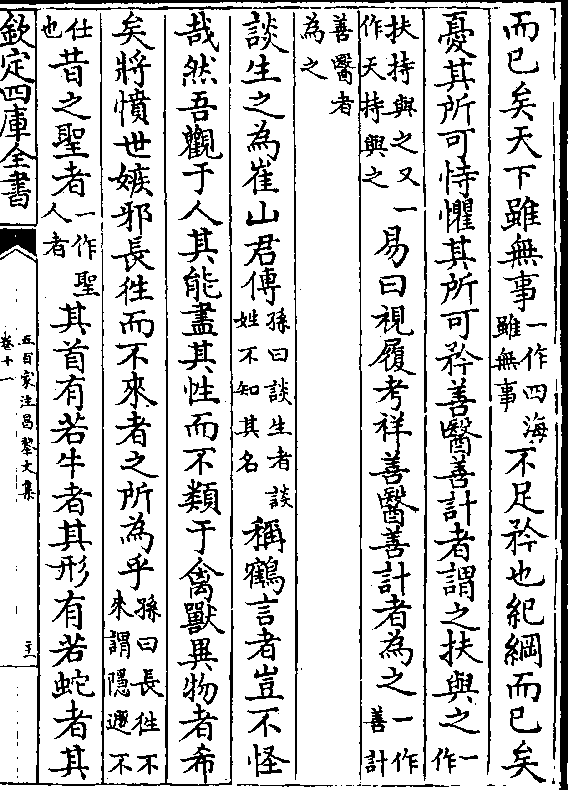 而已矣天下雖無事一作四海雖無事不足矜也紀綱而已矣
憂其所可恃懼其所可矜善醫善計者謂之扶與之一作
扶持與之又一作天持與之易曰視履考祥善醫善計者為之一作善計
善醫者為之
談生之為崔山君傳孫曰談生者談姓不知其名稱鶴言者豈不怪
哉然吾觀于人其能盡其性而不類于禽獸異物者希
矣將憤世嫉邪長徃而不來者之所為乎孫曰長徃不來謂隱遯不
仕也昔之聖者一作聖人者其首有若牛者其形有若蛇者其
欽定四庫全書
五百家注昌黎文集
卷十一